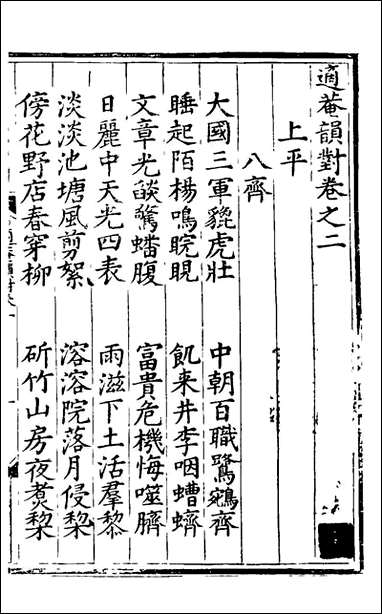 適菴韻對卷之二
上平
八齊
大國三軍貔虎壯 中朝百職鷺鵷齊
睡起陌楊鳴睆睍 飢来井李咽螬蠐
文章光燄驚蟠腹 富貴危機悔噬臍
日麗中天光四表 雨滋下土活羣黎
淡淡池塘風剪絮 溶溶院落月侵梨
傍花野店春穿柳 斫竹山房夜煑棃